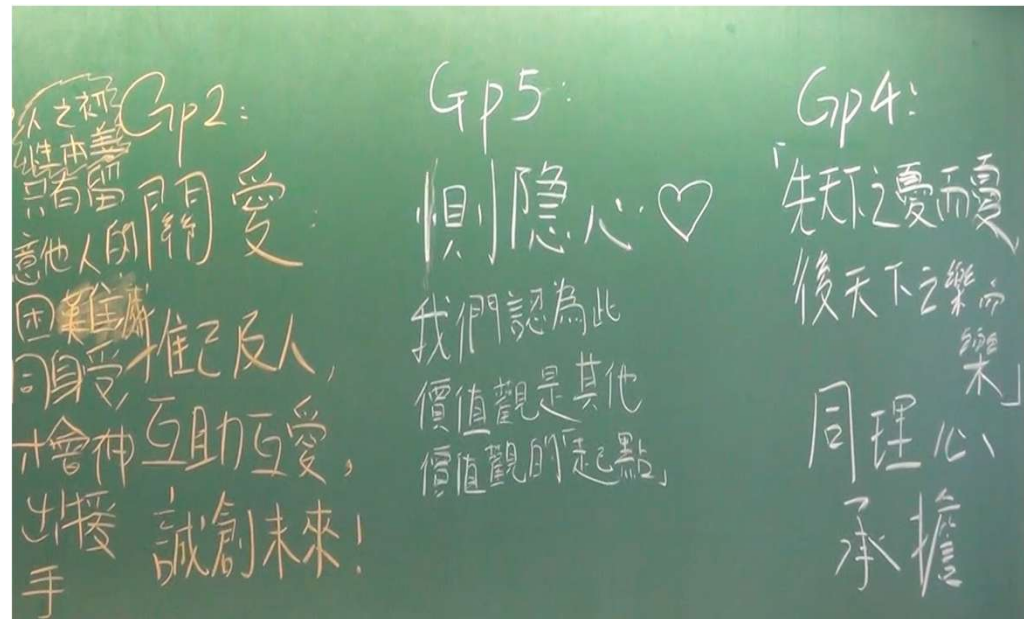 人之初
性本善
只有留
意他人的
困難感
同身受,
才會伸
出援
手
Gp2:
關愛:
推己反人,
互助互愛,
誠創未來!
Gp5:
惻隐心♡
我們認為此
價值觀是其他
價值觀的「起點」
Gp4:
「先天下之憂而憂,
後天下之樂而
樂」
同理心
承擔